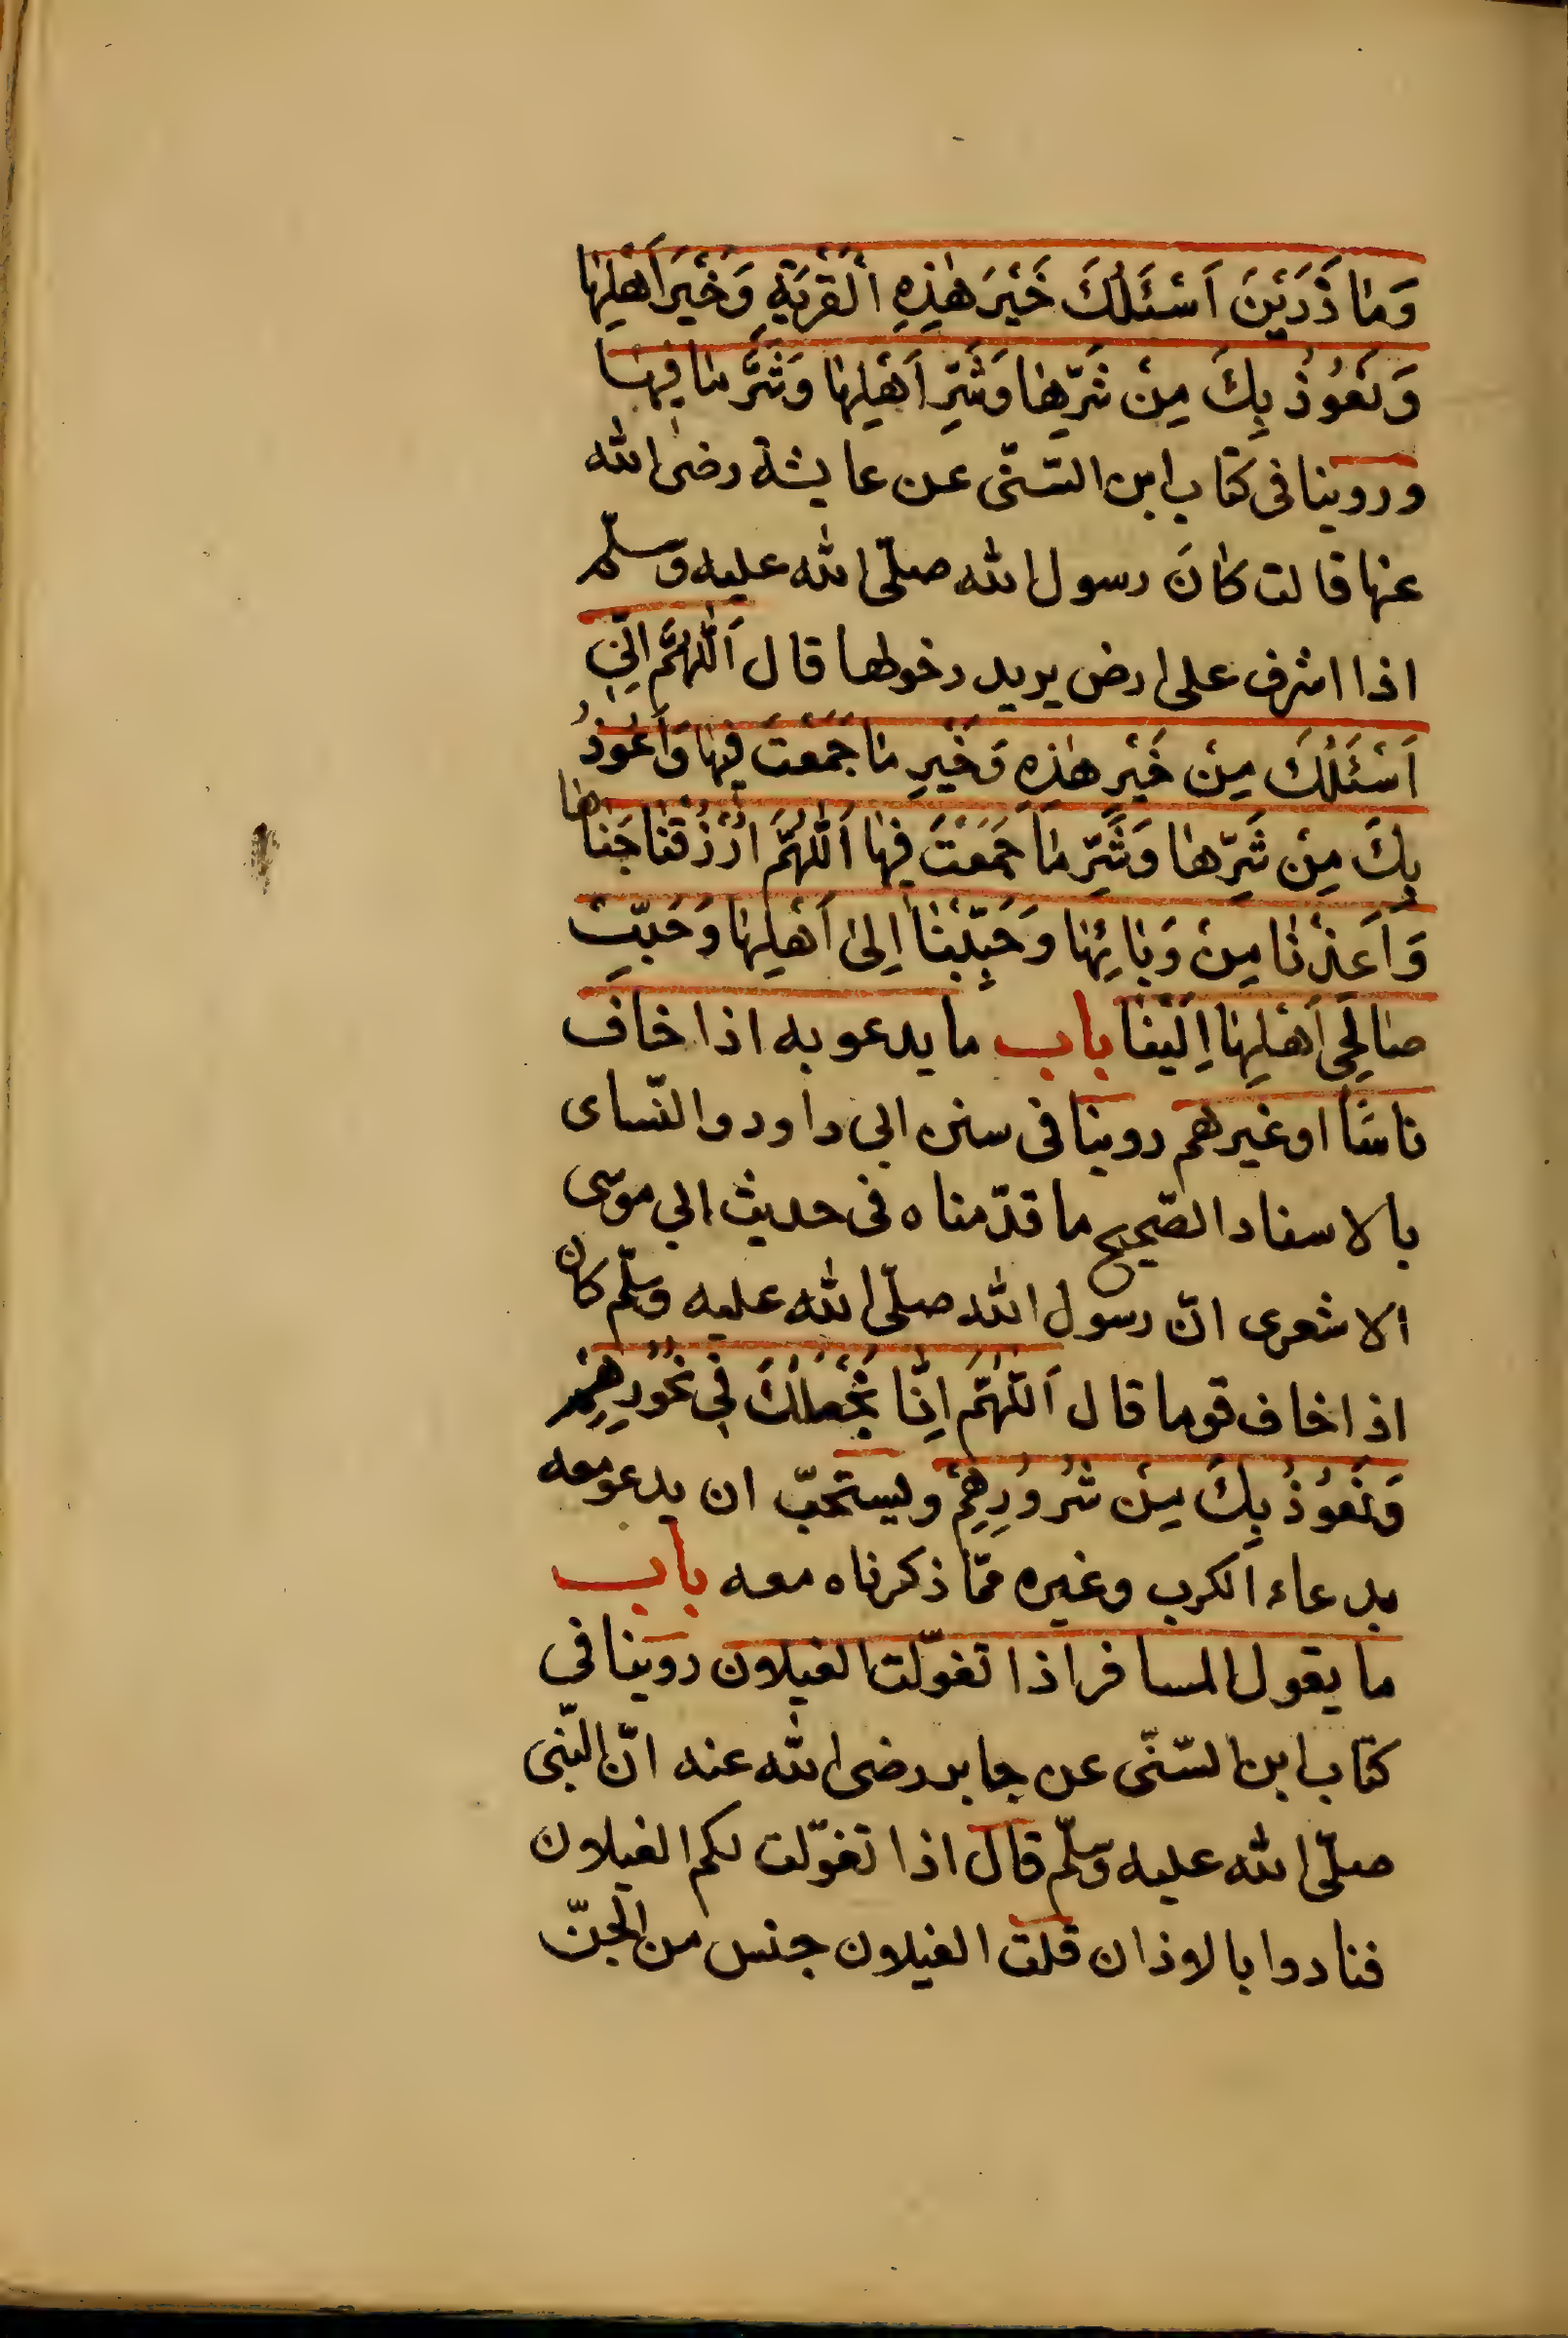 وَمٰا ذَرَيْنَ اَسْئَلُكَ خَيْرَ هٰذِهِ الْقَرْيَةِ وَخَيْرَ اَهْلِهٰا
وَنَعُوُذُ بِكَ مِنْ شَرِّهٰا وَشَرِّ اَهْلِهٰا وَشَرِّ مٰا فِيهٰا
وروينا فى كتاب ابن السّنّى عن عايشة رضى الله
عنها قالت كٰانَ رسول الله صلّى الله عليه وسلّم
اذا اشرف على ارض يريد دخولها قال اَللّٰهُمَّ اِنّىِ
اَسْئَلُكَ مِنْ خَيْرِ هٰذِهِ وَخَيْرِ مٰا جَمَعْتَ فِيهٰا وَاَعُوُذُ
بِكَ مِنْ شَرِّهٰا وَشَرِّ مٰا جَمَعْتَ فِيهٰا اَللّٰهُمَّ ارْزُقْنٰا جَنٰاهٰا
وَاَعِذْنٰا مِنْ وَبٰائِهٰا وَحَبِّبْنٰا اِلىٰ اَهْلِهٰا وَحَبِّبْ
صٰالِحِى اَهْلِهٰا اِلَيْنٰا باب ما يدعو به اذا خاف
ناسًا او غيرهم روينا فى سنن ابى داود والنّساى
بالاسناد الصّحيح ما قدّمناه فى حديث ابى موسى
الاشعرى انّ رسول الله صلّى الله عليه وسلّم كان
اذا خاف قوما قال اَللّٰهُمَّ اِنّٰا نَجْعَلُكَ فِي نُحُوُرِهِمْ
وَنَعُوُذُ بِكَ مِنْ شُرُوُرِهِمْ ويستحبّ ان يدعو معه
بدعاء الكرب وغيره ممّا ذكرناه معه باب
ما يقول المسافر اذا تغوّلت الغيلان روينا في
كتاب ابن السّنّى عن جابر رضى الله عنه انّ النّبى
صلّى الله عليه وسلّم قال اذا تغوّلت لكم الغيلان
فنادوا بالاذان قلت الغيلان جنس من الجنّ